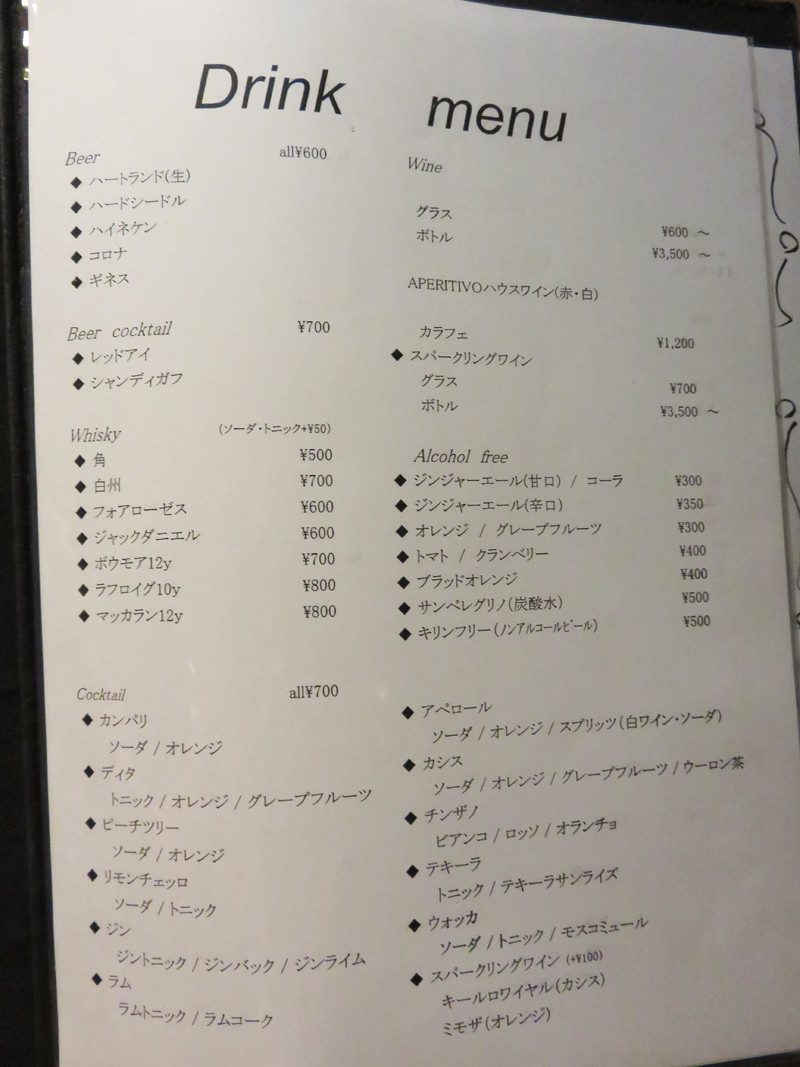 Drink menu
Beer all¥600
◆ ハートランド(生)
◆ ハードシードル
◆ ハイネケン
◆ コロナ
◆ ギネス
Beer cocktail ¥700
◆ レッドアイ
◆ シャンディガフ
Whisky (ソーダ・トニック+¥50)
◆ 角 ¥500
◆ 白州 ¥700
◆ フォアローゼス ¥600
◆ ジャックダニエル ¥600
◆ ボウモア12y ¥700
◆ ラフロイグ10y ¥800
◆ マッカラン12y ¥800
Wine
グラス ¥600 ～
ボトル ¥3,500 ～
APERITIVOハウスワイン(赤・白)
カラフェ ¥1,200
◆ スパークリングワイン
グラス ¥700
ボトル ¥3,500 ～
Alcohol free
◆ ジンジャーエール(甘口) / コーラ ¥300
◆ ジンジャーエール(辛口) ¥350
◆ オレンジ / グレープフルーツ ¥300
◆ トマト / クランベリー ¥400
◆ ブラッドオレンジ ¥400
◆ サンペレグリノ(炭酸水) ¥500
◆ キリンフリー(ノンアルコールビール) ¥500
Cocktail all¥700
◆ カンパリ
ソーダ / オレンジ
◆ ディタ
トニック / オレンジ / グレープフルーツ
◆ ピーチツリー
ソーダ / オレンジ
◆ リモンチェッロ
ソーダ / トニック
◆ ジン
ジントニック / ジンバック / ジンライム
◆ ラム
ラムトニック / ラムコーク
◆ アペロール
ソーダ / オレンジ / スプリッツ(白ワイン・ソーダ)
◆ カシス
ソーダ / オレンジ / グレープフルーツ / ウーロン茶
◆ チンザノ
ビアンコ / ロッソ / オランチョ
◆ テキーラ
トニック / テキーラサンライズ
◆ ウォッカ
ソーダ / トニック / モスコミュール
◆ スパークリングワイン (+¥100)
キールロワイヤル(カシス)
ミモザ(オレンジ)